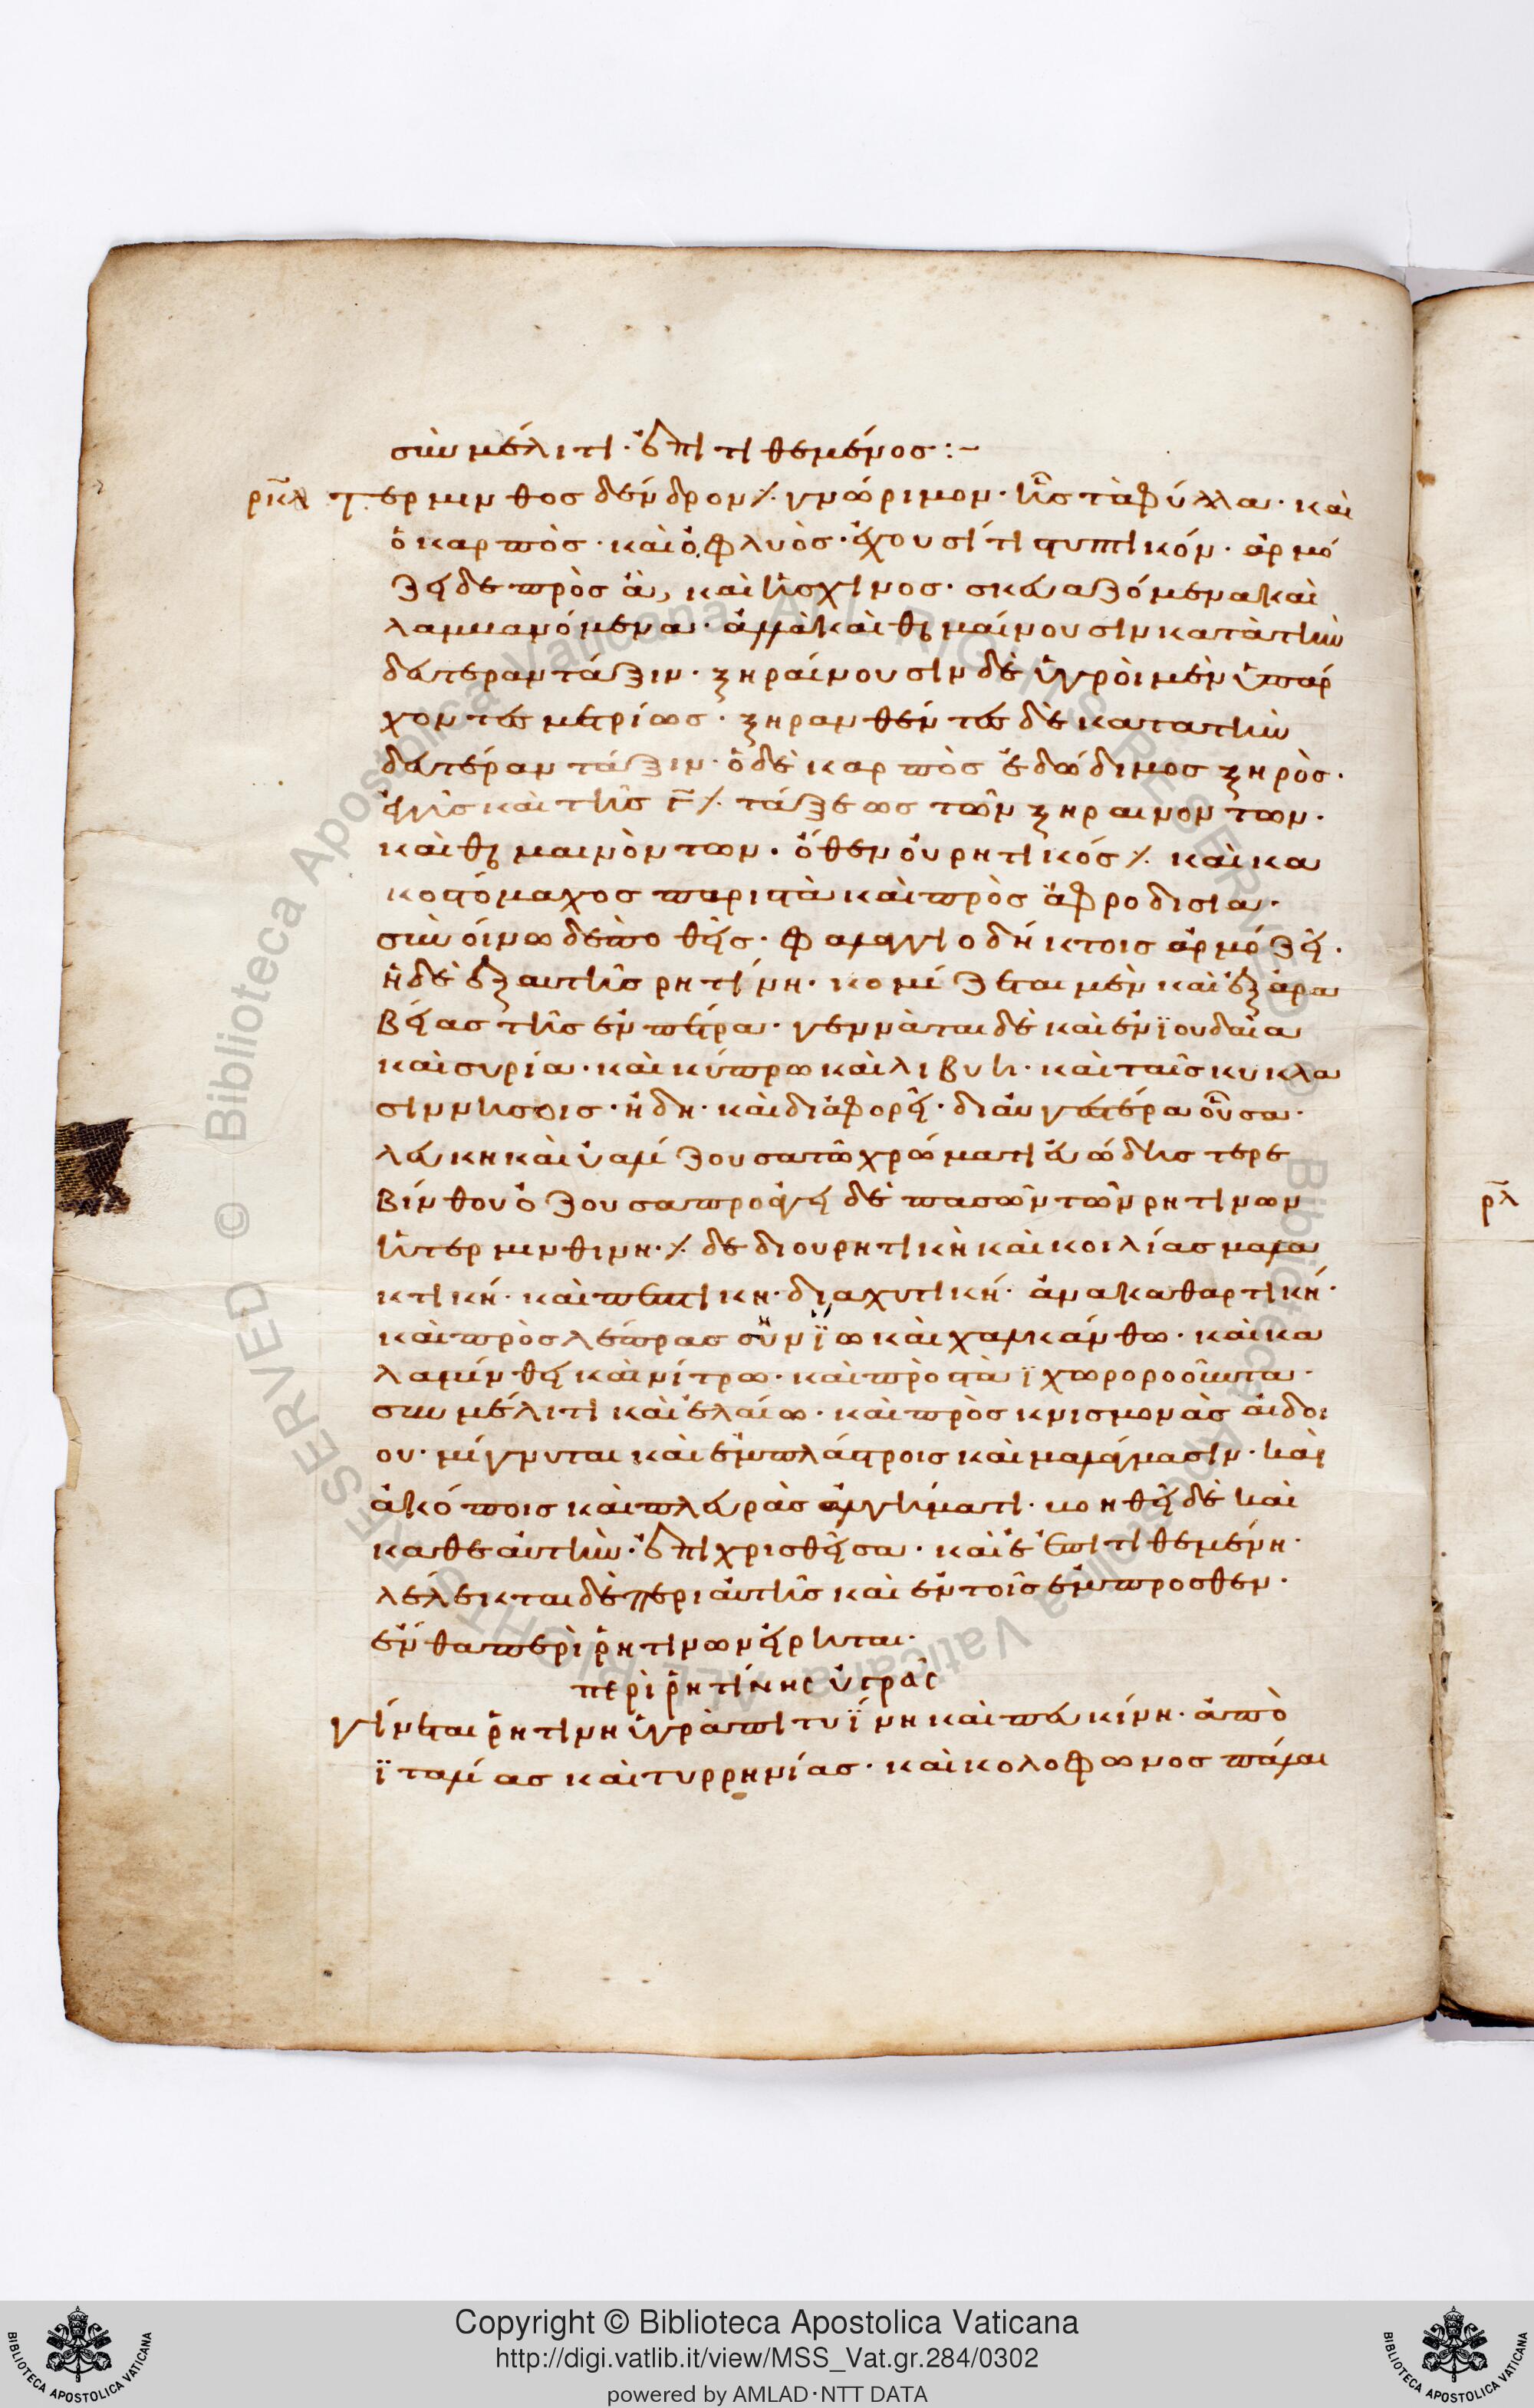 σὺν μέλιτι · ἐπιτιθέμενος :-
ρκλ τερμινθος δένδρον ⁒ γνώριμον · ἧς τὰ φύλλα · καὶ
ὁ καρπὸς · καὶ ὁ φλυὸς · ἔχουσί τι στυπτικόν · ἁρμό
ζει δε πρὸς ἃ, καὶ ἡ σχίνος · σκευαζόμενα καὶ
λαμβανόμενα · ἀλλὰ καὶ θερμαίνουσιν κατὰ τὴν
δευτεραν τάξιν · ξηραίνουσιν δὲ ὑγρὸι μὲν ὑπάρ
χοντες μετρίως · ξηρανθέντες δὲ κατα τὴν
δευτέραν τάξιν · ὁ δὲ καρπὸς ἐδώδιμος ξηρὸς ·
ἐγγὺς καὶ τῆς γ ⁒ τάξεως τῶν ξηραινοντων ·
καὶ θερμαινόντων · ὅθεν οὐρητικός ⁒ καὶ κα
κοστόμαχος παριστᾶ καὶ πρὸς ἀφροδισια ·
σὺν οἴνω δε ποθεὶς · φαλαγγιοδήκτοις ἁρμόζει ·
ἡ δὲ ἐξ αυτῆς ρητίνη · κομίζεται μὲν καὶ ἐξ ἀρα
βείας τῆς ἐν πέτρα · γεννᾶται δὲ καὶ ἐν ϊουδαία
καὶ συρία · καὶ κύπρω καὶ λιβυη · καὶ ταῖς κυκλα
σιν νησοις · ἤδη · καὶ διάφορεῖ · διαυγεστέρα οὖσα ·
λευκη καὶ ὑαλίζουσα τῶ χρώματι ευώδης τερε
βίνθου ὄζουσα προάγει δὲ πασῶν τῶν ρητινων
ἡ τερμινθινη · ⁒ δε διουρητικὴ καὶ κοιλίας μαλα
κτική · καὶ πεπτικη · διαχυτική · ἀνακαθαρτική ·
καὶ πρὸς λέπρας σὺν ϊω καὶ χαλκάνθω · καὶ κα
λαμίνθη καὶ νίτρω · καὶ πρὸς τὰ ϊχωροροοῦντα ·
συν μέλιτι καὶ ἐλαίω · καὶ πρὸς κνισμονὰς αἰδοι
ου · μίγνυται καὶ ἐμπλάστροις καὶ μαλάγμασιν · καὶ
ἀκόποις καὶ πλευρὰς ἀλγήματι · βοηθεῖ δὲ καὶ
καθεαυτὴν · ἐπιχρισθεῖσα · καὶ ἐπιτιθεμένη ·
λέλεκται δὲ περι αὐτῆς καὶ ἐν τοῖς ἔμπροσθεν ·
ἔνθα περὶ ῥητινων εἴρηται ·
περὶ ῥητίνης ὑγρᾶς
γίνεται ῥητινη ὑγρὰ πιτυΐνη καὶ πευκίνη · ἀπὸ
ϊταλίας καὶ τυρρηνίας · καὶ κολοφωνος πάλαι
ρλ
Copyright © Biblioteca Apostolica Vaticana
http://digi.vatlib.it/view/MSS_Vat.gr.284/0302
powered by AMLAD·NTT DATA